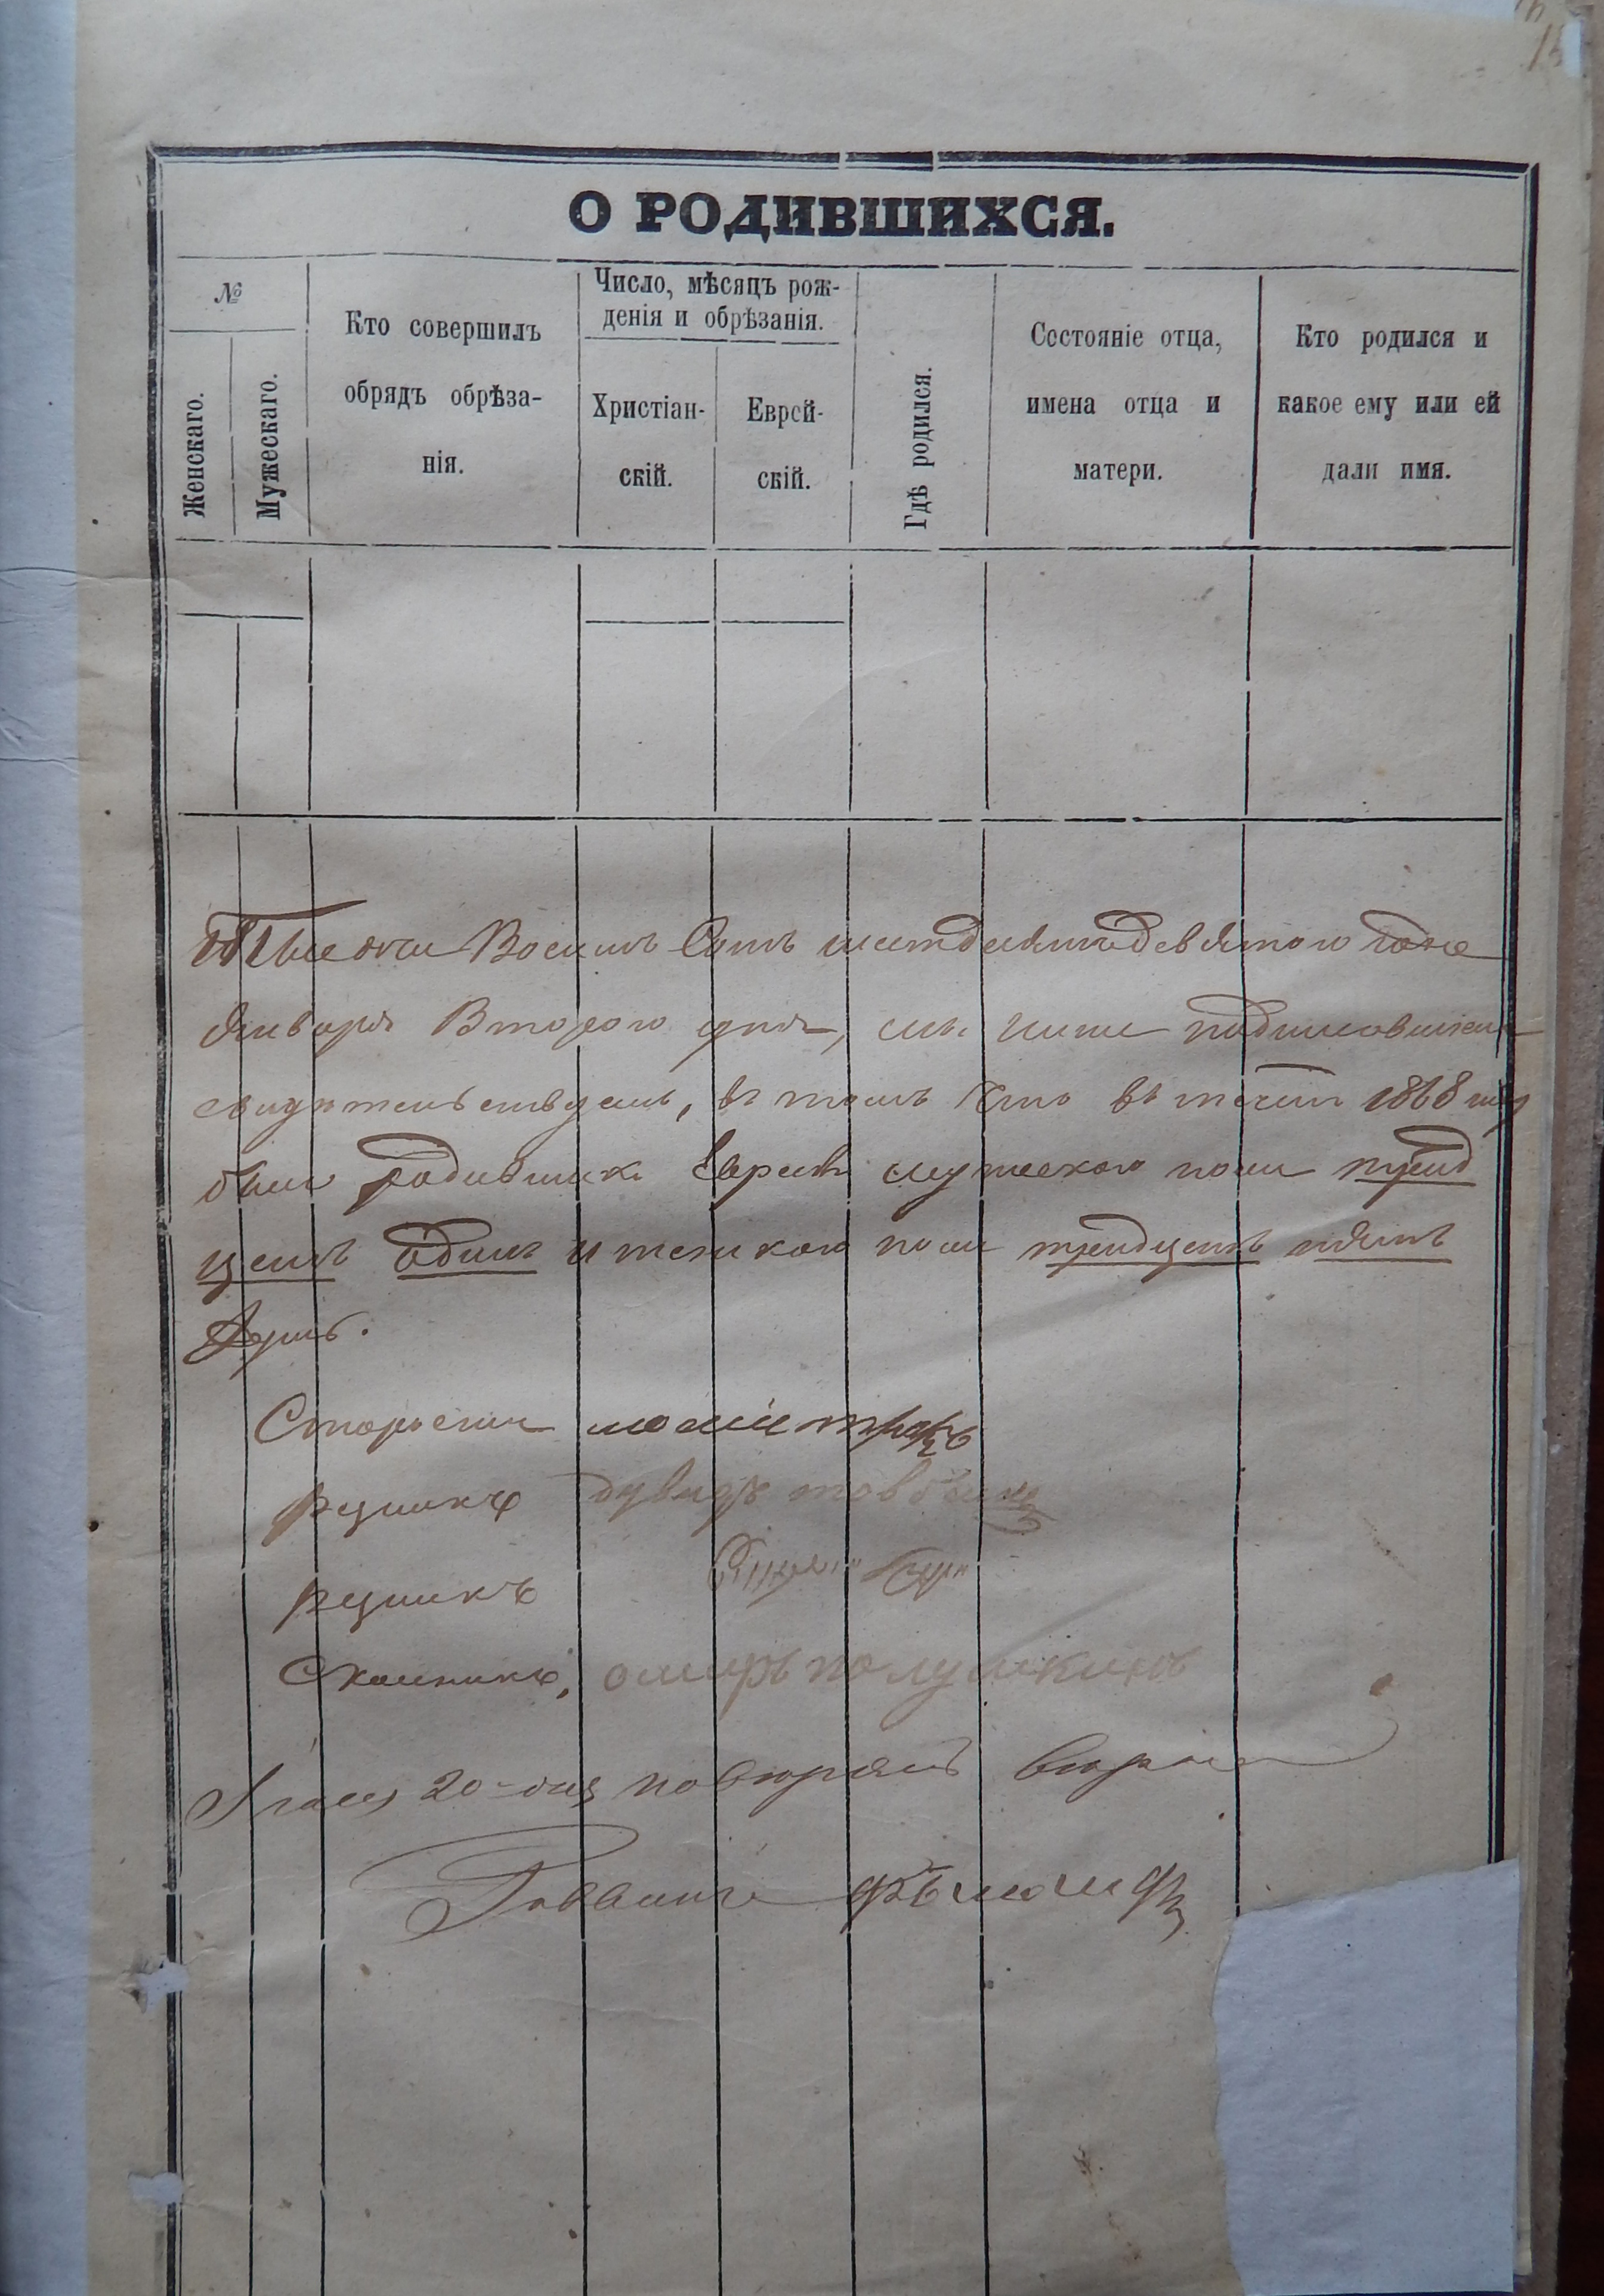 15
О РОДИВШИХСЯ.
№
Женскаго.
Мужескаго.
Кто совершилъ
обрядъ обрѣза-
нія.
Число, мѣсяцъ рож-
денія и обрѣзанія.
Христіан-
скій.
Еврей-
скій.
Гдѣ родился.
Состояніе отца,
имена отца и
матери.
Кто родился и
какое ему или ей
дали имя.
Тысеча Восимъ Сотъ шестдесятъ девятого года
Января Второго дня, мы ниже подписовшіеся
свидѣтельствуемъ, въ томъ что въ течніи 1868 году
было родившихъ Евреевъ мужескаго пола трид
цеть один и женского пола тридцеть пять
душъ.
Староста
резникъ дувидъ
резникъ
Школникъ,
20
Раввинъ